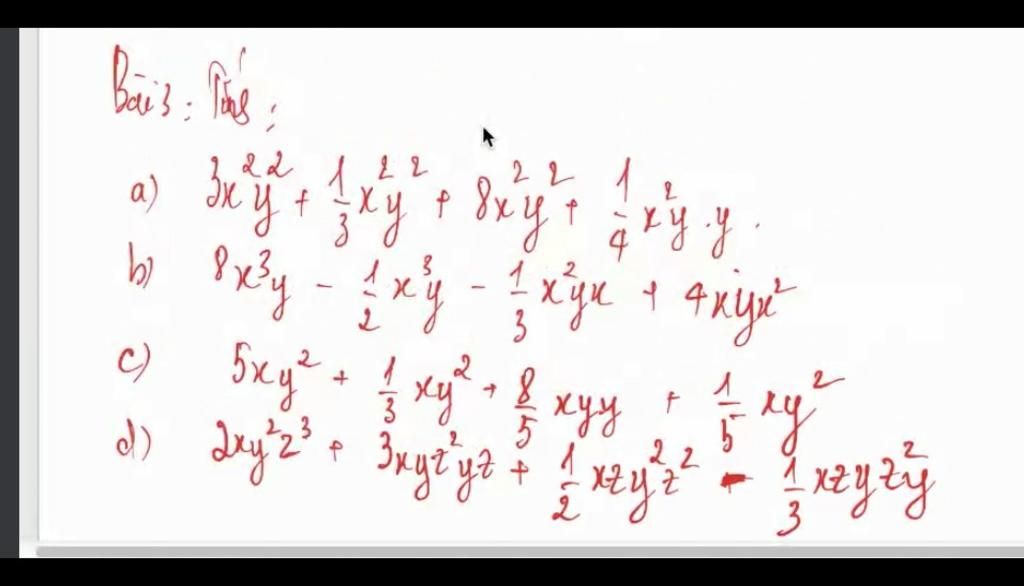 Bài 3: Tính:
a) 3x²y² + 1/3 x²y² + 8x²y² + 1/4 x²y.y.
b) 8x³y - 1/2 x³y - 1/3 x²yx + 4xyx²
c) 5xy² + 1/3 xy² + 8/5 xyy + 1/5 xy²
d) 2xy²z³ + 3xyz²yz + 1/2 xzy²z² - 1/3 xzyz²y